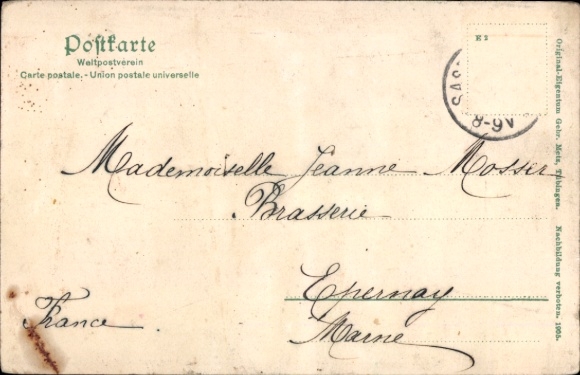 Postkarte
Weltpostverein
Carte postale. - Union postale universelle
E 2
SAS
8-9V
Mademoiselle Jeanne Mosser
Brasserie
Epernay
France
Marne
Original-Eigentum Gebr. Metz, Tübingen. Nachbildung verboten. 1905.